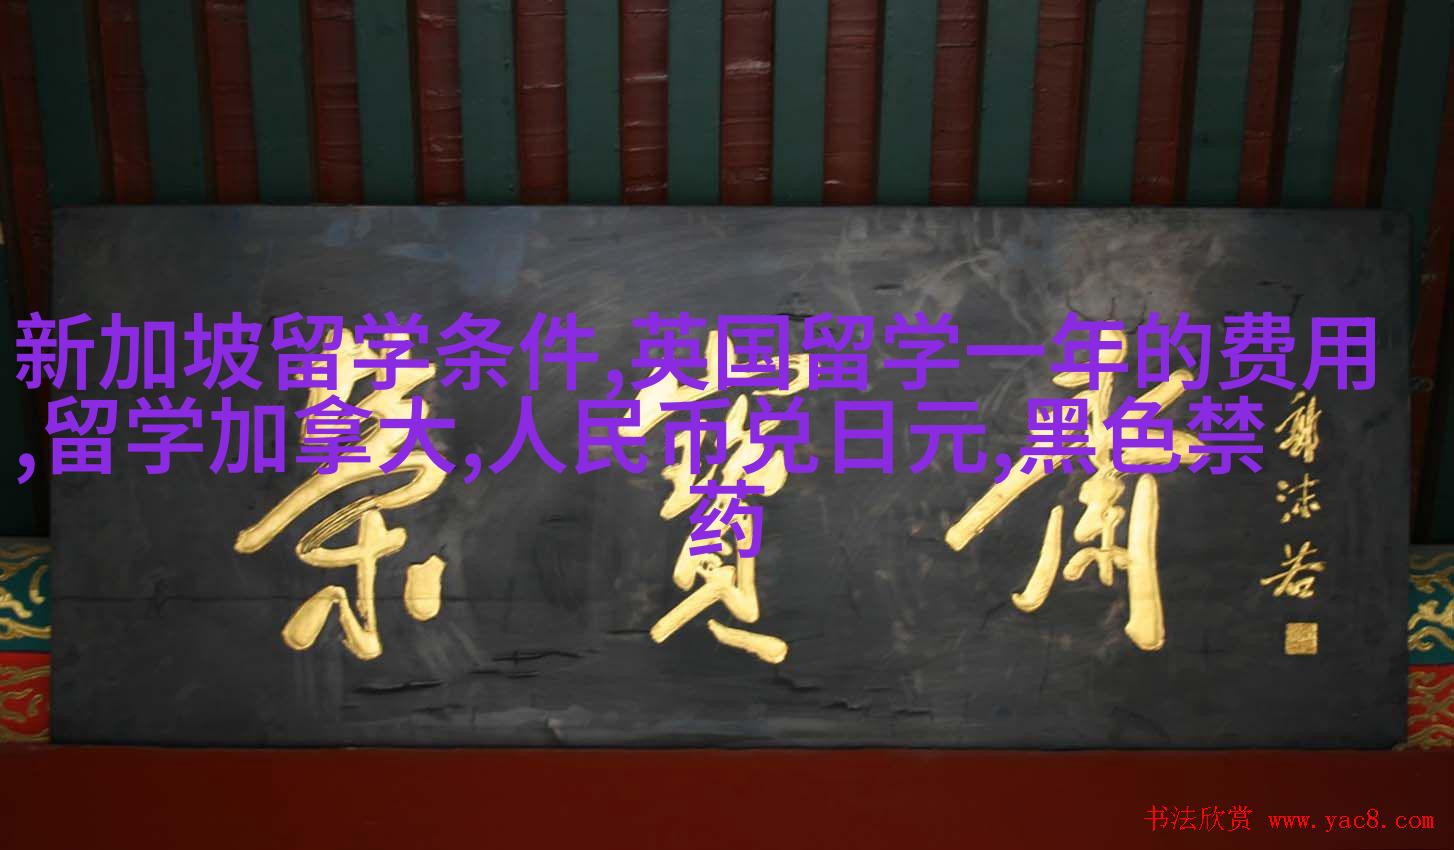 新加坡留学条件,英国留学一年的费用
,留学加拿大,人民币兑日元,黑色禁
药
荣宝斋
郭沫若
书法欣赏 www.yac8.com